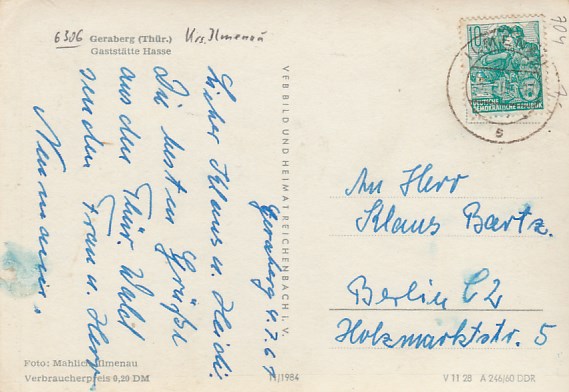 6306
Geraberg (Thür.) Krs. Ilmenau
Gaststätte Hasse
704
10
DEUTSCHE
DEMOKRATISCHE REPUBLIK
Geraberg 4.7.61
Lieber Klaus u. Heidi!
Die besten Grüße
aus dem Thür. Wald
senden Frau u. Herr
VEB BILD UND HEIMAT REICHENBACH i. V.
An Herr
Klaus Bartz.
Berlin C2
Holzmarktstr. 5
Foto: Mahlich, Ilmenau
Verbraucherpreis 0,20 DM
11/1984
V 11 28 A 246/60 DDR